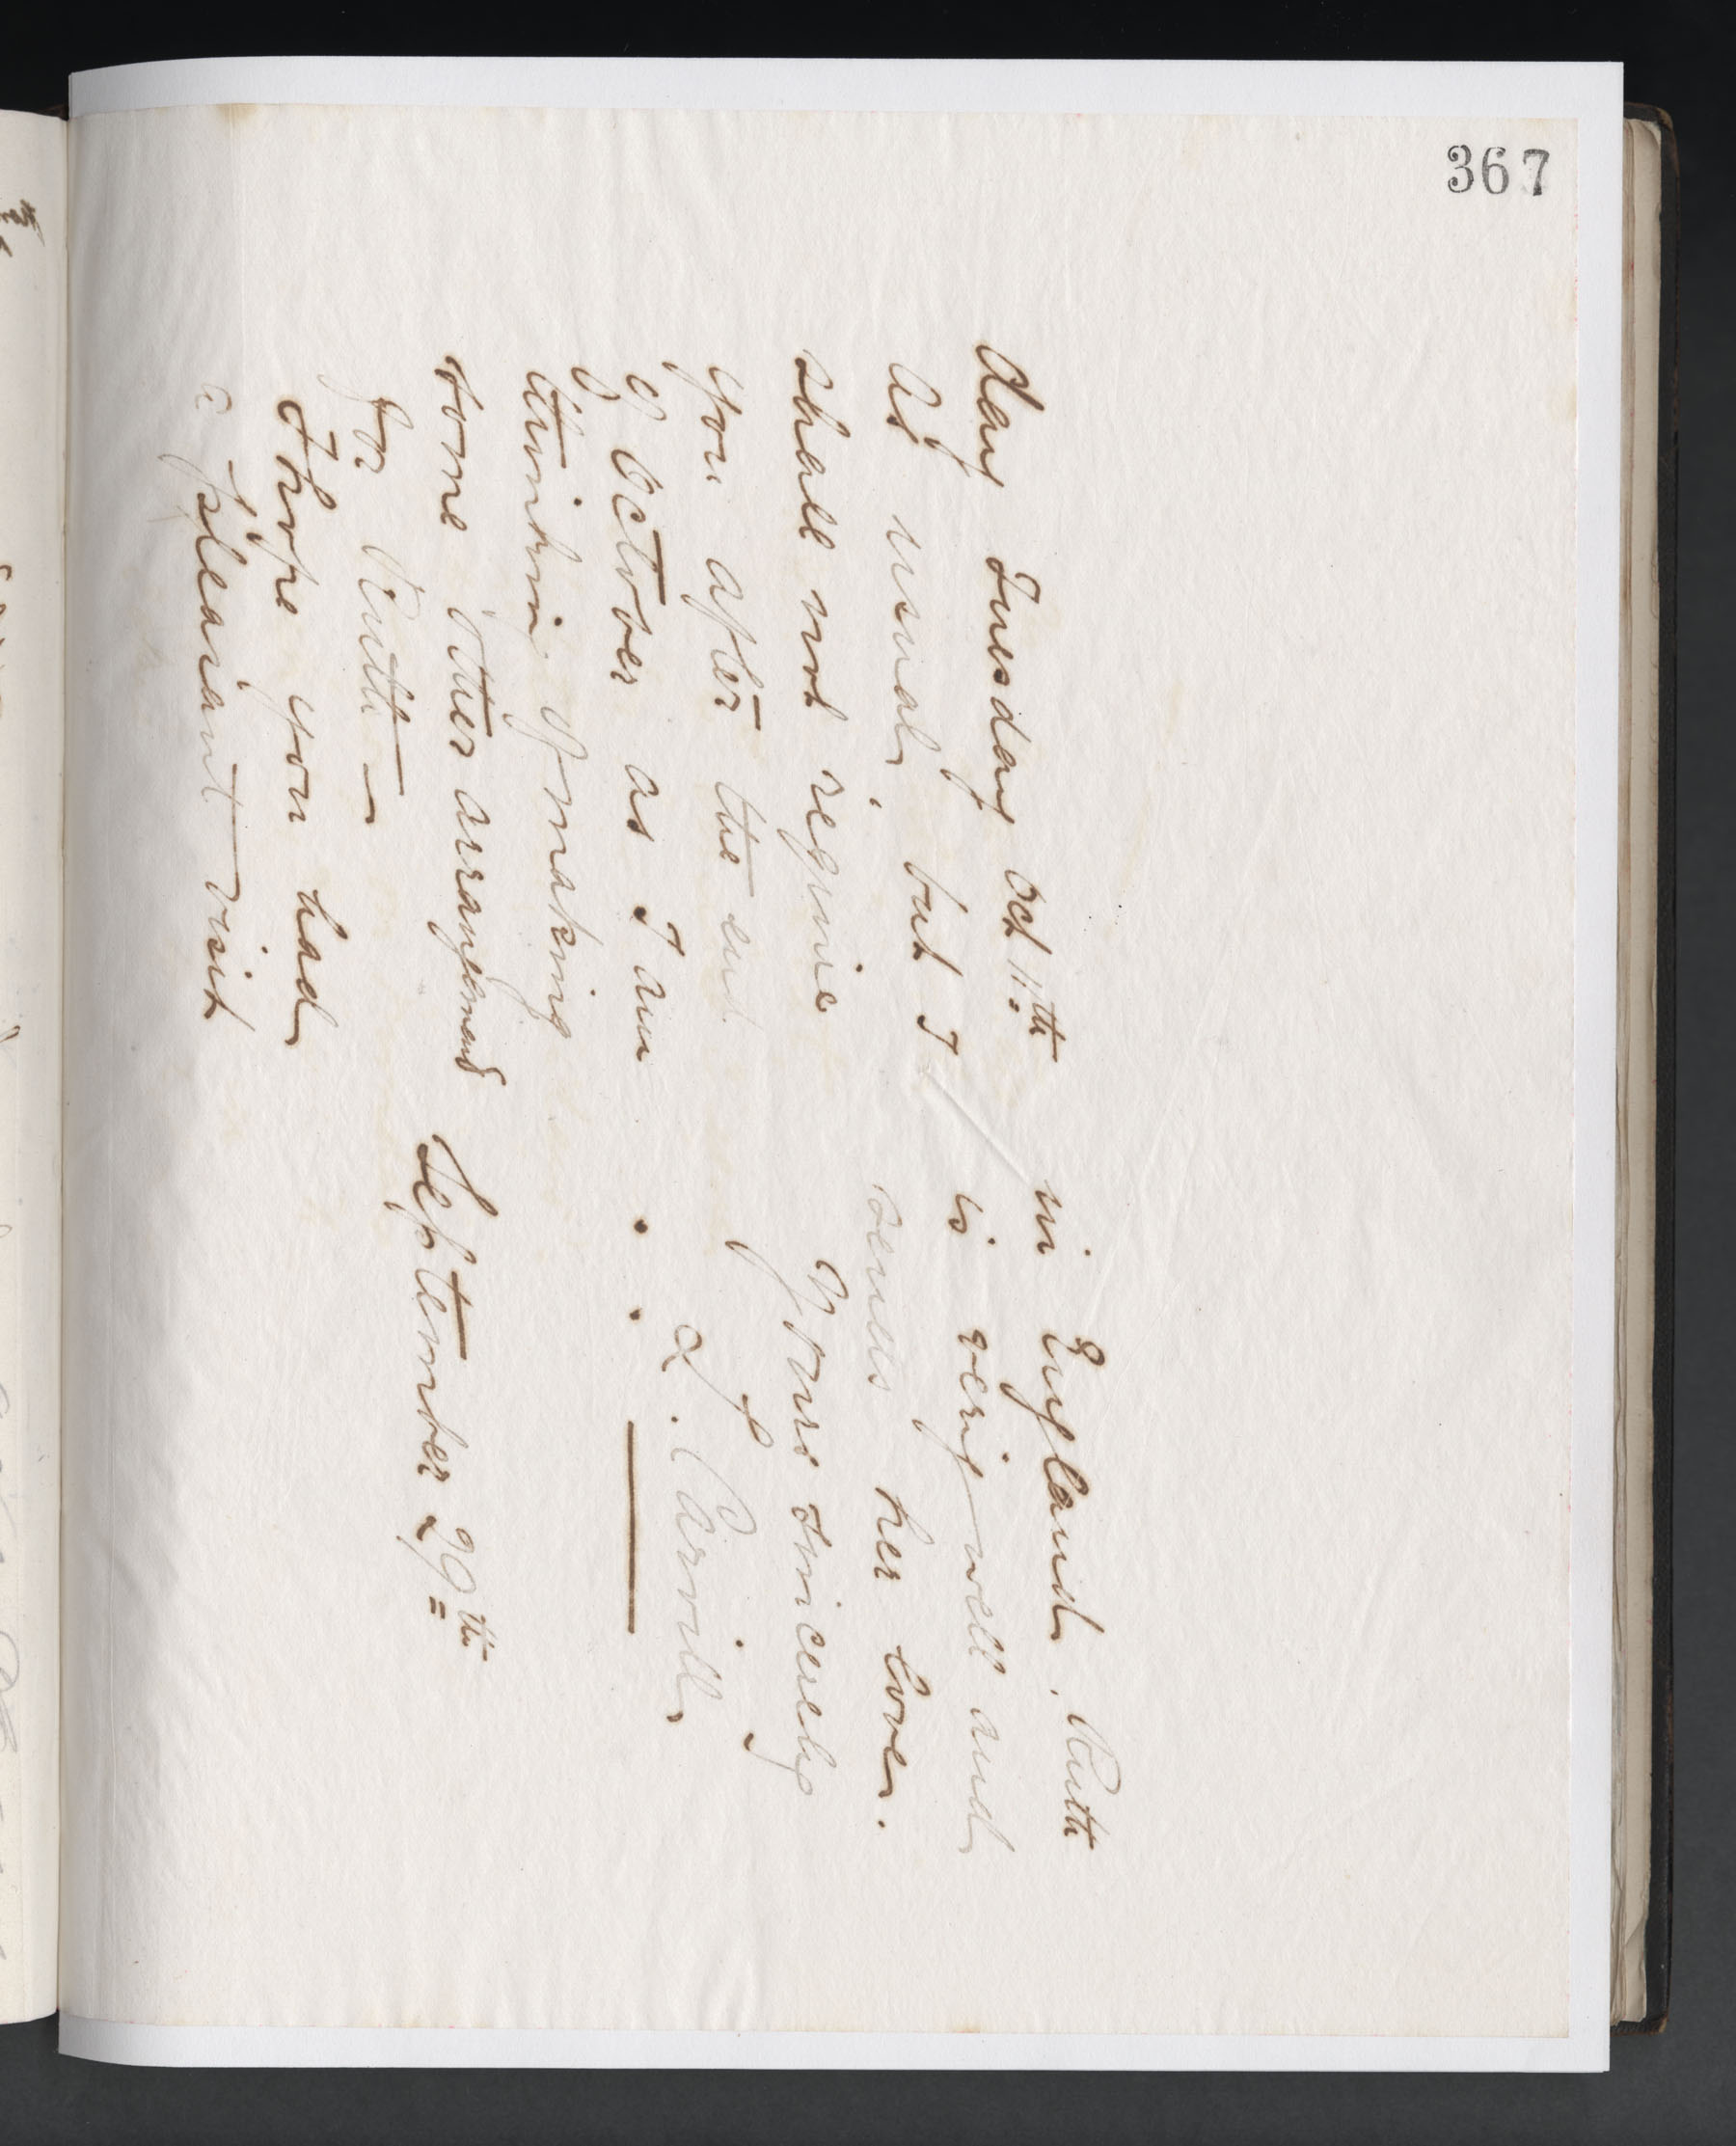 367
day Tuesday Oct 11th
as usual, but I
shall not require
you after the end
of October as I am
thinking of making
some other arrangements
for Ruth —
I hope you had
a pleasant visit
in England. Ruth
is very well and
sends her love.
Yours sincerely
L. Carvill
September 29th